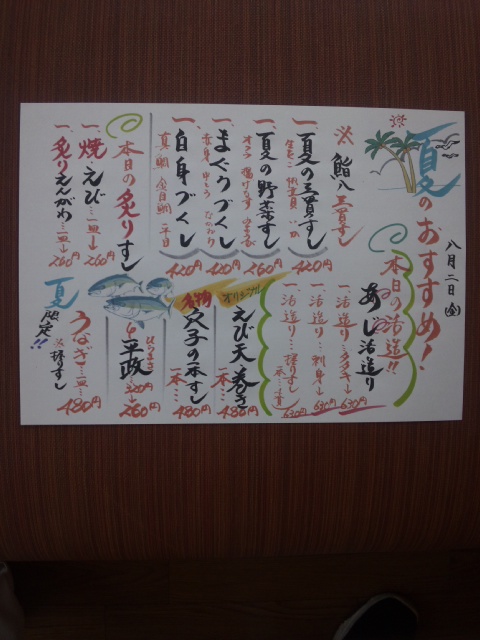 夏のおすすめ!
八月二日(金)
※鮨八三貫すし
一、夏の三貫すし
420円
一、夏の野菜すし
260円
一、まぐろづくし
赤身 中とろ
420円
一、白身づくし
真鯛 金目鯛 平目
420円
本日の炙りすし
一、焼えび…一皿→260円
一、炙りえんがわ…一皿→260円
本日の活造!!
あじ活造り
一、活造り…タタキ→630円
一、活造り…刺身→630円
一、活造り…握りすし
630円
オリジナル
えび天巻き
一本…480円
名物
穴子の一本すし
一本…480円
ひらまさ
平政
320円→260円
夏限定!!
うなぎ…一皿…480円
※握りすし